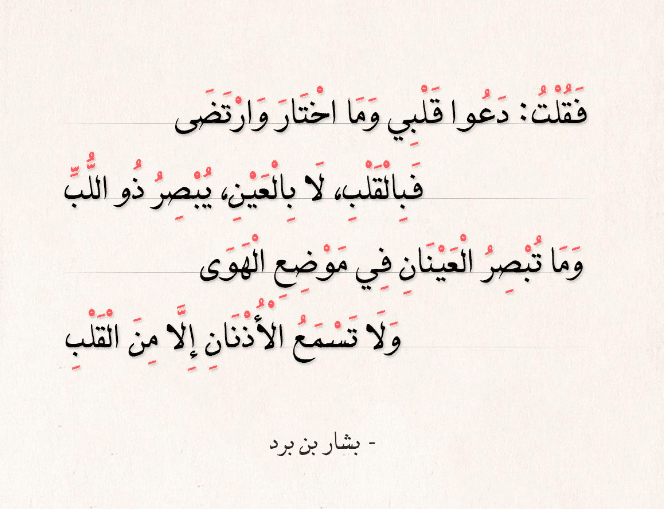 فَقُلْتُ: دَعُوا قَلْبِي وَمَا اخْتَارَ وَارْتَضَى
فَبِالْقَلْبِ، لَا بِالْعَيْنِ، يُبْصِرُ ذُو اللُّبِّ
وَمَا تُبْصِرُ الْعَيْنَانِ فِي مَوْضِعِ الْهَوَى
وَلَا تَسْمَعُ الْأُذْنَانِ إِلَّا مِنَ الْقَلْبِ
- بشار بن برد